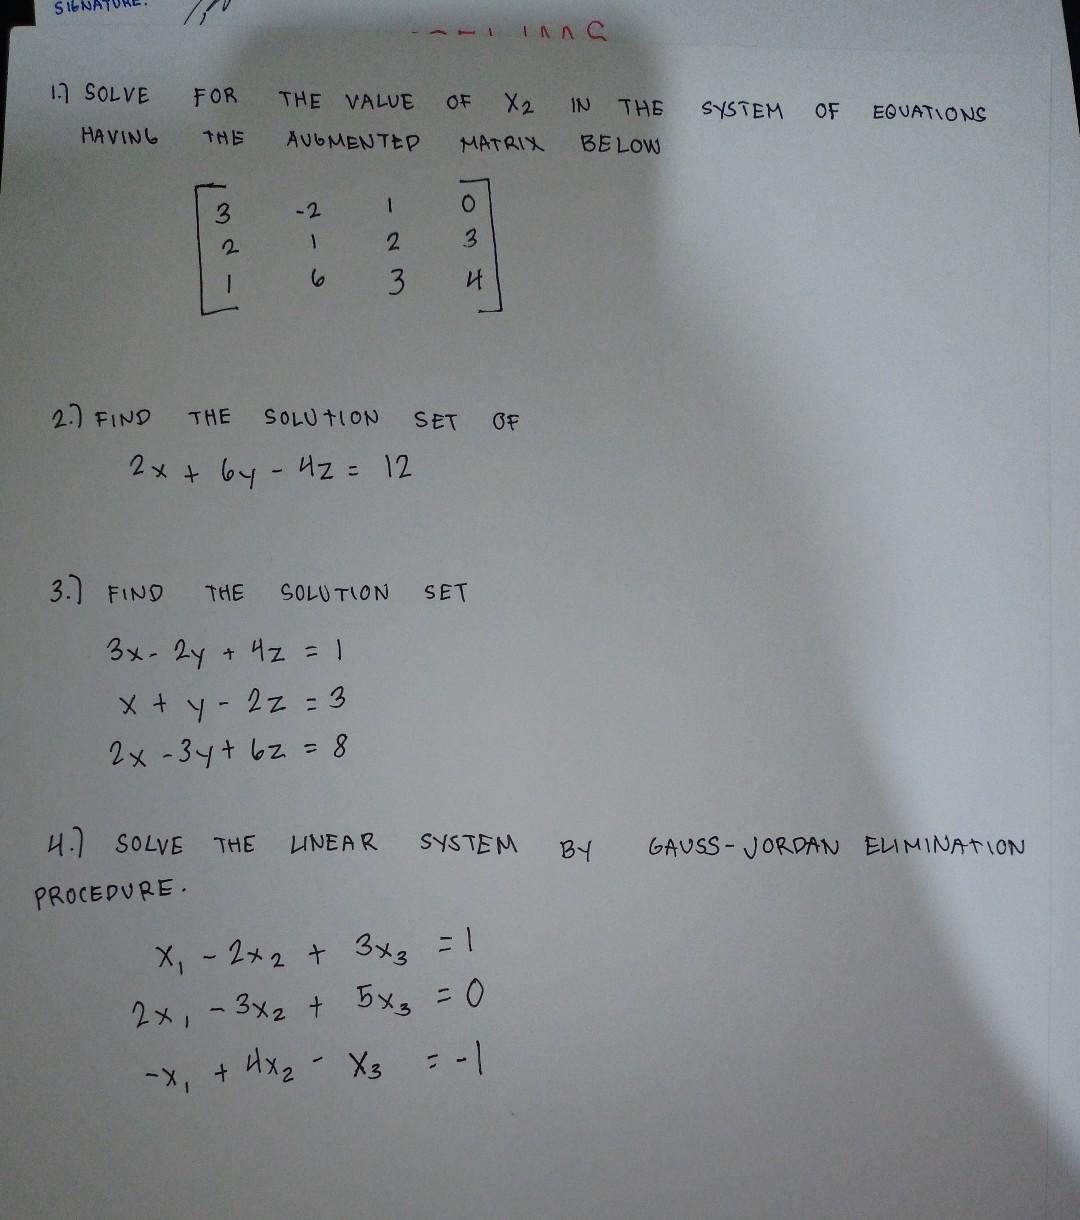 SIGNATURE:
1.) SOLVE FOR THE VALUE OF X2 IN THE SYSTEM OF EQUATIONS
HAVING THE AUGMENTED MATRIX BELOW
3 -2 1 0
2 1 2 3
1 6 3 4
2.) FIND THE SOLUTION SET OF
2x + 6y - 4z = 12
3.) FIND THE SOLUTION SET
3x - 2y + 4z = 1
x + y - 2z = 3
2x - 3y + 6z = 8
4.) SOLVE THE LINEAR SYSTEM BY GAUSS-JORDAN ELIMINATION
PROCEDURE.
x₁ - 2x₂ + 3x₃ = 1
2x₁ - 3x₂ + 5x₃ = 0
-x₁ + 4x₂ - x₃ = -1